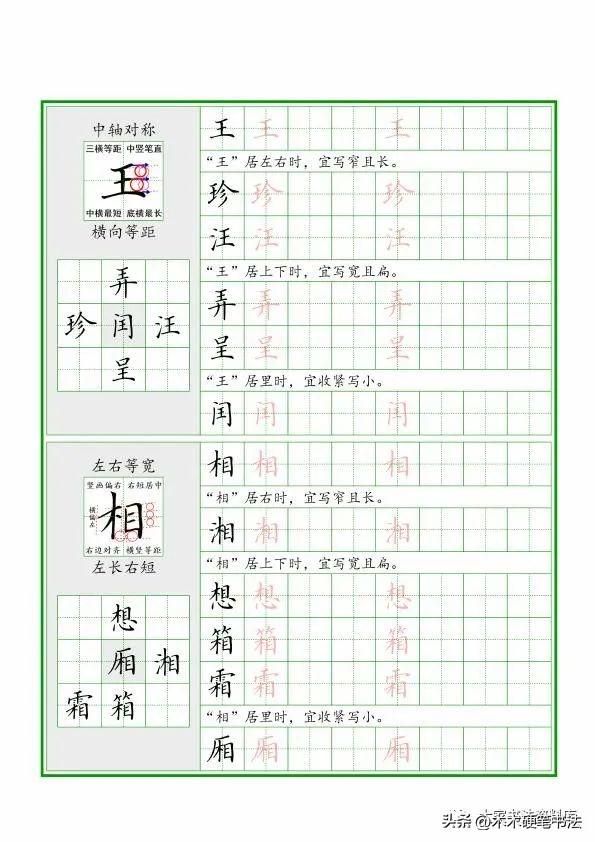 中轴对称
三横等距 中竖笔直
王
中横最短 底横最长
横向等距
弄
珍 闰 汪
呈
王 王 王
“王”居左右时，宜写窄且长。
珍 珍 珍
汪 汪 汪
“王”居上下时，宜写宽且扁。
弄 弄 弄
呈 呈 呈
“王”居里时，宜收紧写小。
闰 闰 闰
左右等宽
竖画偏右 右短居中
横偏左
相
右边对齐 横竖等距
左长右短
想
厢 湘
霜 箱
相 相 相
“相”居右时，宜写窄且长。
湘 湘 湘
“相”居上下时，宜写宽且扁。
想 想 想
箱 箱 箱
霜 霜 霜
“相”居里时，宜收紧写小。
厢 厢 厢
头条 @木木硬笔书法